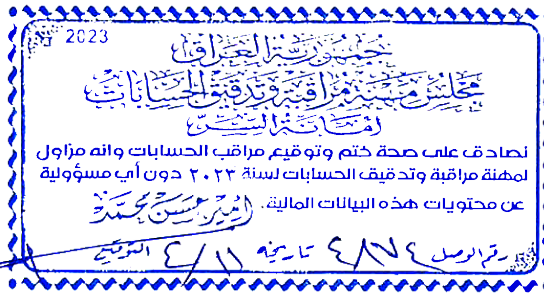 2023
جمهورية العراق
مجلس مهنة مراقبة وتدقيق الحسابات
امانة السر
نصادق على صحة ختم وتوقيع مراقب الحسابات وانه مزاول
لمهنة مراقبة وتدقيق الحسابات لسنة ٢٠٢٣ دون أي مسؤولية
عن محتويات هذه البيانات المالية.
امير حسن محمد
رقم الوصل ٤٨٧٤ تاريخه ٤/١١ التوقيع